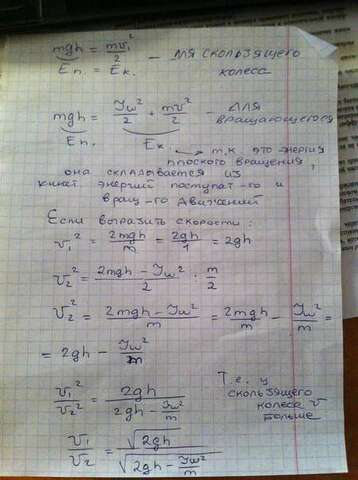 mgh = mv₁²/2 – для скользящего
Eп. = Eк. колеса
mgh = Jω²/2 + mv²/2 – для вращающегося
Eп. Eк. → т.к это энергия
плоского вращения,
она складывается из
кинет энергий поступат-го и
вращ-го движений
Если выразить скорости:
v₁² = 2mgh/m = 2gh/1 = 2gh
v₂² = 2mgh – Jω²/2 : m/2
v₂² = 2mgh – Jω²/m = 2mgh/m – Jω²/m =
= 2gh – Jω²/m
v₁²/v₂² = 2gh/2gh – Jω²/m
Т.е. у
скользящего
колеса v
больше
v₁/v₂ = √2gh/√2gh – Jω²/m